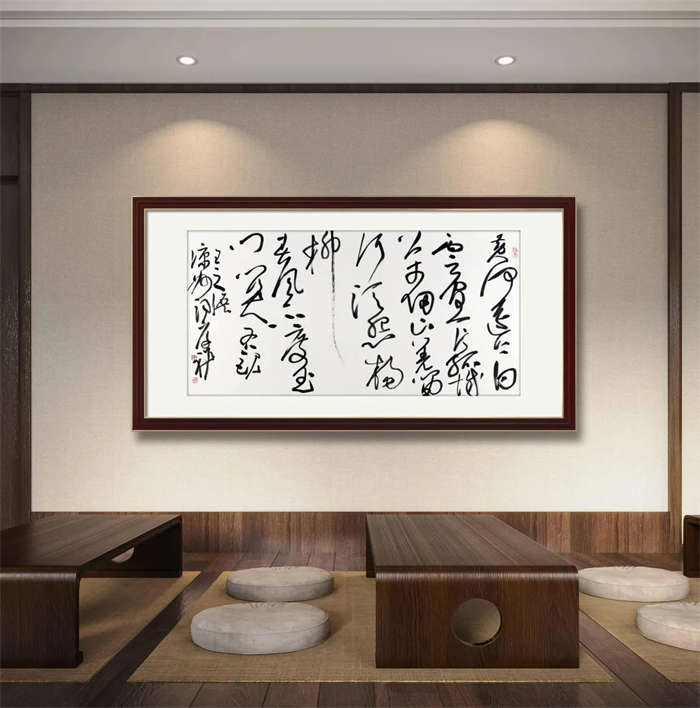 黄河远上白
云间一片孤城
万仞山羌笛
何须怨杨
柳
春风不度玉
门关
王之涣
凉州词